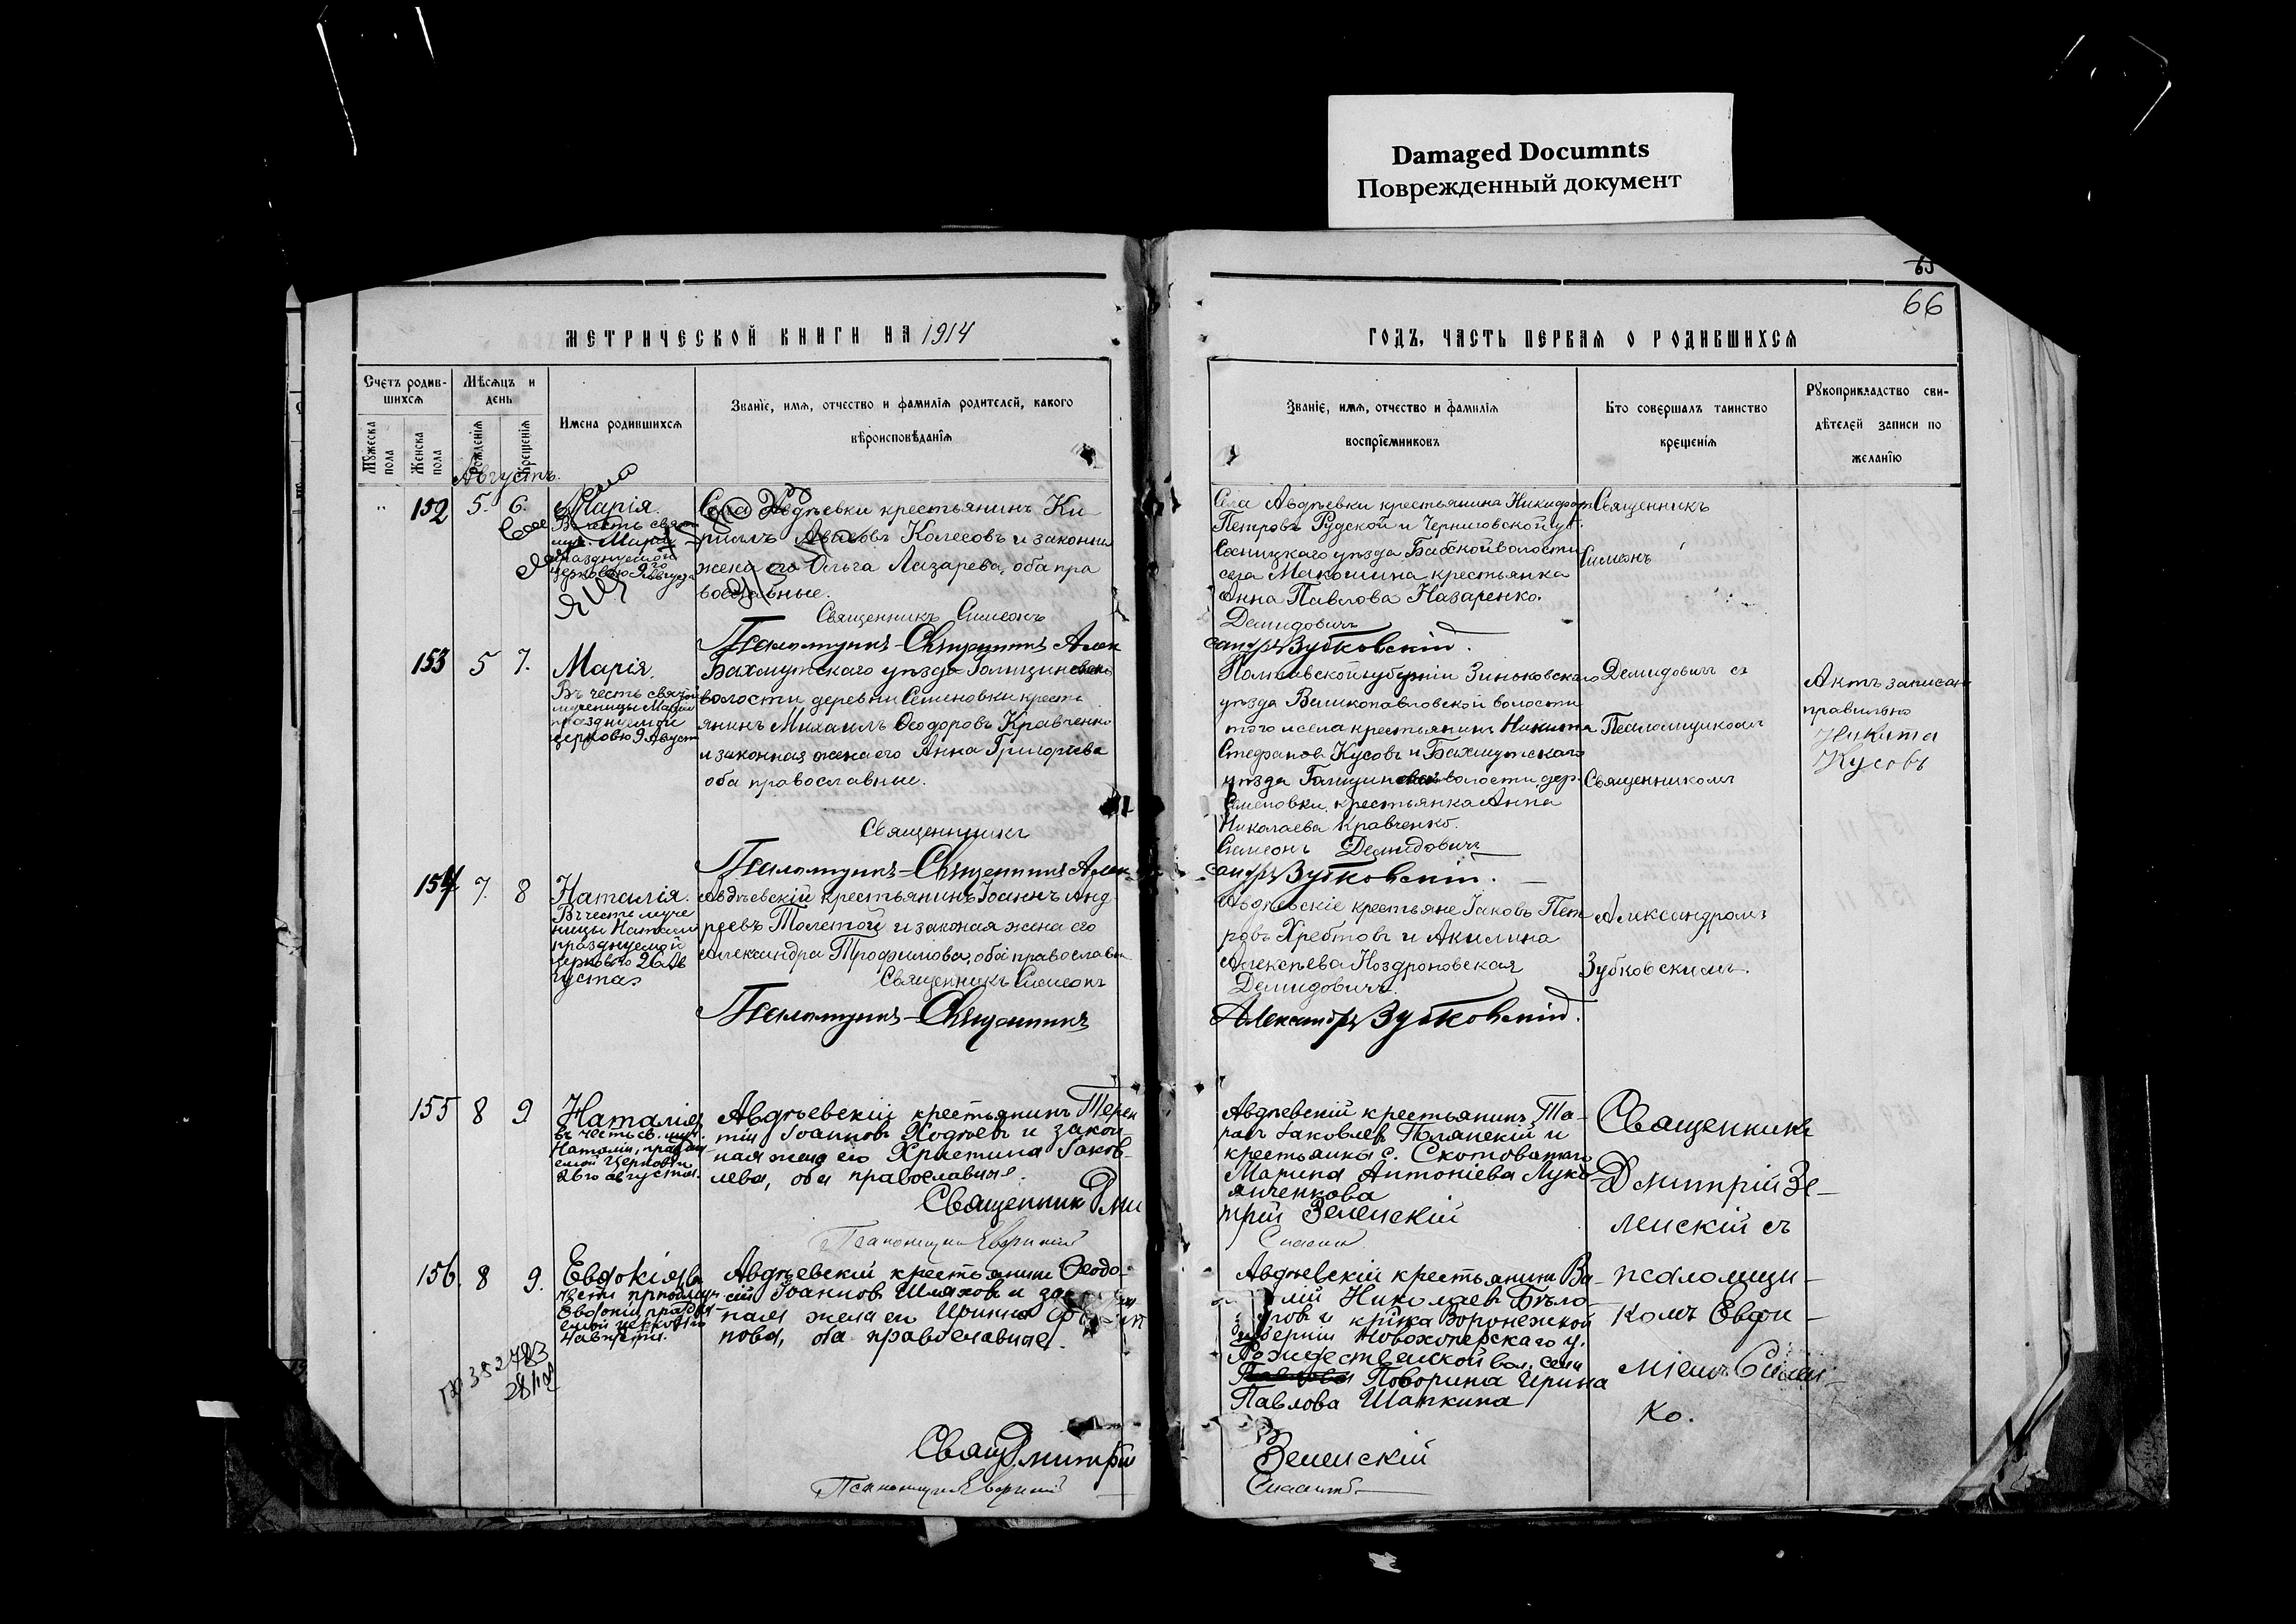 Damaged Documnts
Поврежденный документ
65
66
МЕТРИЧЕСКОЙ КНИГИ НА 1914
ГОДЪ, ЧАСТЬ ПЕРВАЯ О РОДИВШИХСЯ
Счетъ родив-
шихся
Мѣсяцъ и
день
Мужеска
пола
Женска
пола
Рожденія
Крещенія
Имена родившихся
Званіе, имя, отчество и фамилія родителей, какого
вѣроисповѣданія
Званіе, имя, отчество и фамилія
воспріемниковъ
Кто совершалъ таинство
крещенія
Рукоприкладство сви-
дѣтелей записи по
желанію
Августъ.
152 5. 6. Марія.
Въ честь свят
муч. Маріи
празднуемой
церковью 9го Августа
Села Авдѣевки крестьянинъ Ки
риллъ Колесовъ и законная
жена его Ольга Лазарева, оба пра
вославные.
Священникъ Симеонъ
Псаломщикъ-Священникъ Алек
Села Авдѣевки крестьянина Никифоръ
Петровъ Рудской и Черниговской губ.
Сосницкаго уѣзда Бабской волости
села Макошина крестьянка
Анна Павлова Назаренко.
Демидовичъ
сандръ Зубковскій.
Священникъ
Симеонъ
153 5 7. Марія.
Въ честь святой
мученицы Маріи
празднуемой
церковью 9 Август
Бахмутскаго уѣзда Голицинской
волости деревни Семеновки крест
янинъ Михаилъ Ѳеодоровъ Кравченко
и законная жена его Анна Григорьева
оба православные.
Священникъ
Псаломщикъ-Священникъ Алек
Полтавской губерніи Зиньковскаго
уѣзда Великопавловской волости
того и села крестьянинъ Никита
Стефановъ Кусовъ и Бахмутскаго
уѣзда Голицинской волости, дер.
Семеновки, крестьянка Анна
Николаева Кравченко.
Симеонъ Демидовичъ
сандръ Зубковскій.
Демидовичъ съ
Псаломщикомъ
Священникомъ
Актъ записанъ
правильно
Никита
Кусовъ
154 7. 8 Наталія.
Въ честь муче
ницы Наталіи
празднуемой
церковью 26 Ав
густа
Авдѣевскій крестьянинъ Іоаннъ Анд
реевъ Толстой и законая жена его
Александра Трофимова, оба православн
Священникъ Симеонъ
Псаломщикъ-Священникъ
Авдѣевскіе крестьяне Іаковъ Пет
ровъ Хребтовъ и Акилина
Алексѣева Ноздроновская
Демидовичъ.
Александръ Зубковскій.
Александромъ
Зубковскимъ.
155 8 9 Наталія
въ честь св. муч.
Наталіи, праздн
емой Церковью
26го августа.
Авдѣевскій крестьянинъ Терен
тій Іоанновъ Ходѣевъ и закон
ная жена его Христина Іаков-
лева, оба православные.
Священникъ Дми
Авдѣевскій крестьянинъ Та-
расъ Іаковлевъ и
крестьянка с. Скотоватаго
Марина Антоніева Лукъ
янченкова
трій Зеленскій
Священникъ
Дмитрій Зе-
ленскій съ
156. 8 9. Евдокія, въ
Авдѣевскій крестьянинъ Ѳеодо-
сій Іоанновъ Шляховъ и за
ная жена его Ирина
нова, оба православные.
Авдѣевскій крестьянинъ Ва-
лій Николаевъ Бѣло-
ровъ и кр-нка Воронежской
губерніи Новохоперскаго у.
Рождественской вол. села
Поворина Ирина
Павлова Шапкина
псаломщи-
комъ Евфи-
міемъ
ко.
28/IV
Свящ. Дмитрій
Зеленскій